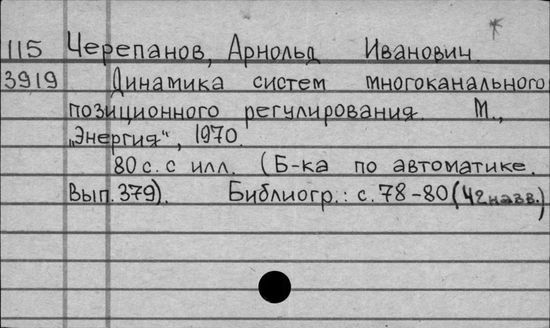 115 Черепанов, Арнольд Иванович.
3919 Динамика систем многоканального
позиционного регулирования. М.,
„Энергия“, 1970.
80 с. с илл. (Б-ка по автоматике.
Вып. 379). Библиогр.: с. 78-80 (42 назв.)